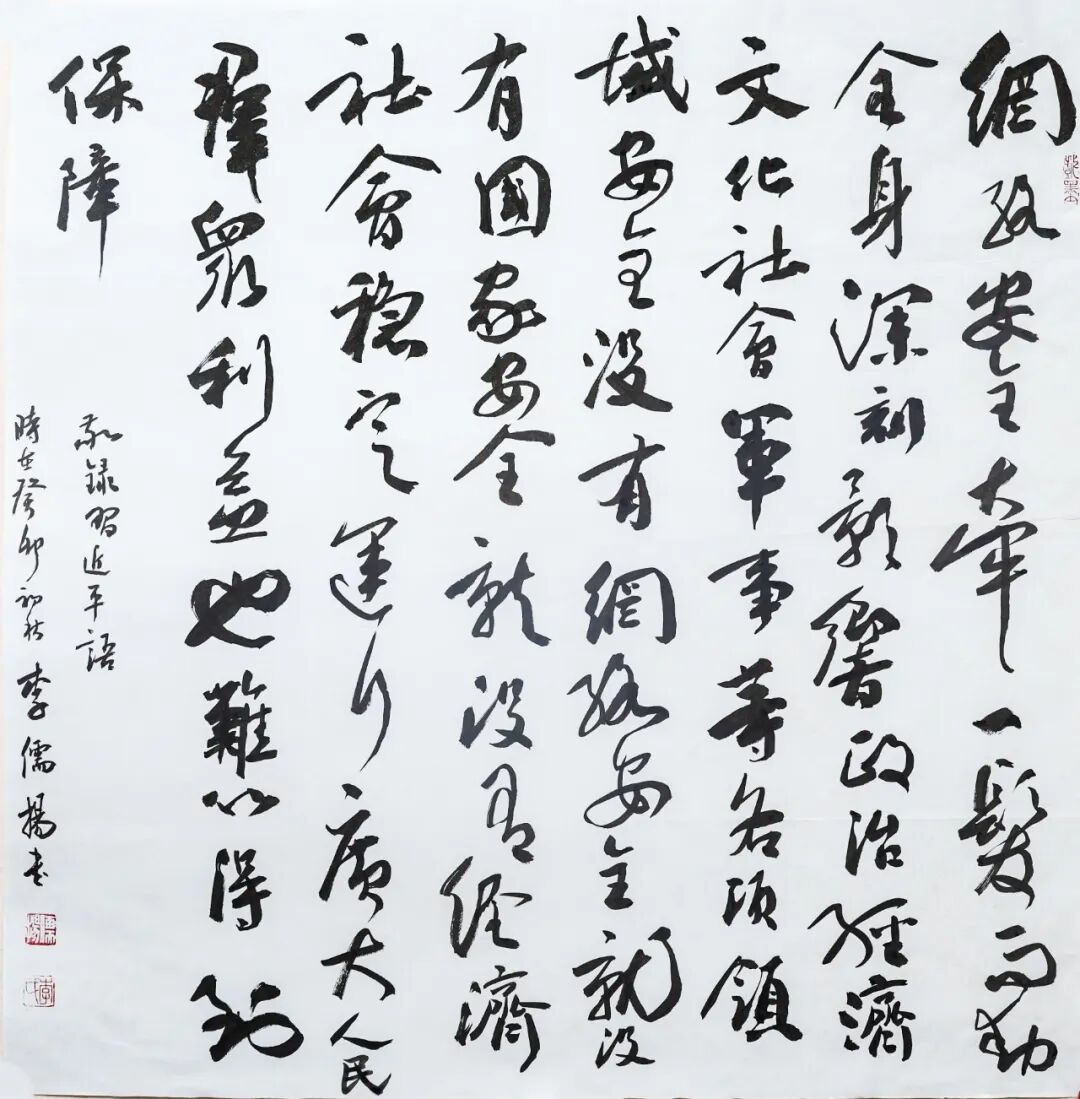 網絡安全牵一髮而動
全身深刻影響政治經濟
文化社會軍事等各項領
域安全没有網絡安全就没
有國家安全就没有经濟
社會稳定運行廣大人民
羣眾利益也難以得到
保障
敬録習近平語
時在癸卯初秋李儒楊書